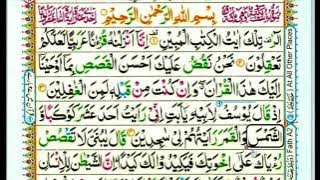 بِسْمِ اللّٰهِ الرَّحْمٰنِ الرَّحِيْمِ
الٓرٰ تِلْكَ اٰيٰتُ الْكِتٰبِ الْمُبِيْنِ اِنَّاۤ اَنْزَلْنٰهُ قُرْءٰنًا عَرَبِيًّا لَّعَلَّكُمْ
تَعْقِلُوْنَ نَحْنُ نَقُصُّ عَلَيْكَ اَحْسَنَ الْقَصَصِ بِمَاۤ اَوْحَيْنَاۤ
اِلَيْكَ هٰذَا الْقُرْاٰنَ وَاِنْ كُنْتَ مِنْ قَبْلِهٖ لَمِنَ الْغٰفِلِيْنَ
اِذْ قَالَ يُوْسُفُ لِاَبِيْهِ يٰۤاَبَتِ اِنِّيْ رَاَيْتُ اَحَدَ عَشَرَ كَوْكَبًا وَّ
الشَّمْسَ وَالْقَمَرَ رَاَيْتُهُمْ لِيْ سٰجِدِيْنَ قَالَ يٰبُنَيَّ لَا تَقْصُصْ
رُءْيَاكَ عَلٰۤى اِخْوَتِكَ فَيَكِيْدُوْا لَكَ كَيْدًا اِنَّ الشَّيْطٰنَ لِلْاِنْسَانِ
At All Other Places
Fath A2